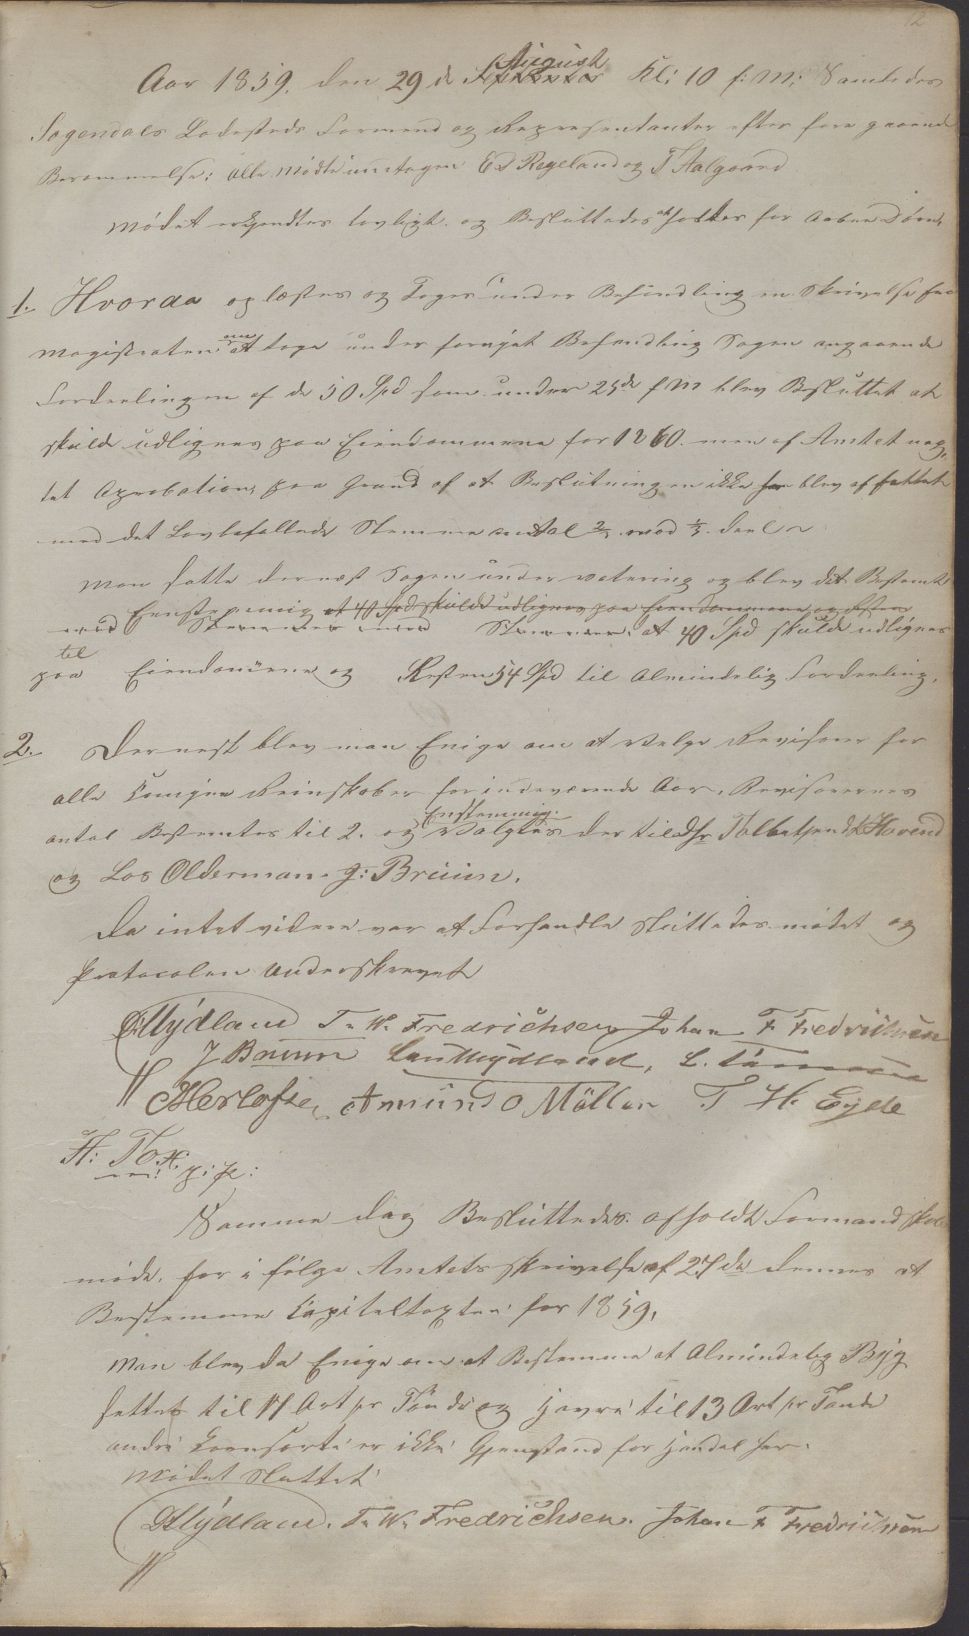 12
Aar 1859. den 29 de August Kl: 10 f: M: Samledes
Sogendals Ladesteds Formend og Representanter efter fore gaaende
Berammelse; alle Mødte undtagen E d Regeland og T Aalgaard
Mødet erkjendtes lovligt. og Besluttedes at holdes for aaben Døre,
1. Hvoraa oplæstes og toges under Behandling en Skrivelse fra
Magistraten om at tage under fornyet Behandling Sagen angaaende
Fordeelingen af de 50 Spd som under 25de f M blev Besluttet at
skulde udlignes paa Eiendommene for 1860. men af Amtet neg-
tet Aprobation, paa Grund af at Beslutningen ikke blev affattet
med det Lovbefallede Stemme antal 2/3 mod 1/3 deel
Man satte dernæst Sagen under votering og blev det Bestemt
Eenstemmig at 40 Spd skulde udlignes paa Eiendommene og Resten
med Stemmer mod Stemmer. at 40 Spd skulde udlignes
til
paa Eiendomene og Resten 54 Spd til Almindelig Fordeeling.
2. Dernest blev man Enige om at Velge Revisorer for
alle Comune Reinskaber for indeværende Aar, Revisorernes
Enstemmig
antal Bestemtes til 2. og Valgtes der til dhr Tolbetjendt Hovend
og Los Olderman J: Bruun.
Da intet videre var at Forhandle sluttedes mødet og
Protocolen Underskrevet
Mydland T. W. Fredrichsen Johan F Fredrichsen
J Bruun Mydland, L.
Herlofsen Amund O Møller T H. Eyde
H: Tox:
p: p:
Samme dag Besluttedes afholdt Formandskabs
møde, for i følge Amtets skrivelse af 27 de dennes at
Bestemme Capiteltaxten for 1859,
Man blev da Enige om at Bestemme at Almindelig Byg
settes til 17 Ort pr Tønde og Havre til 13 Ort pr Tønde
andre Kornsorte er ikke Gjenstand for Handel her.
Mødet sluttet
Mydland. T. W. Fredrichsen. Johan F Fredrichsen